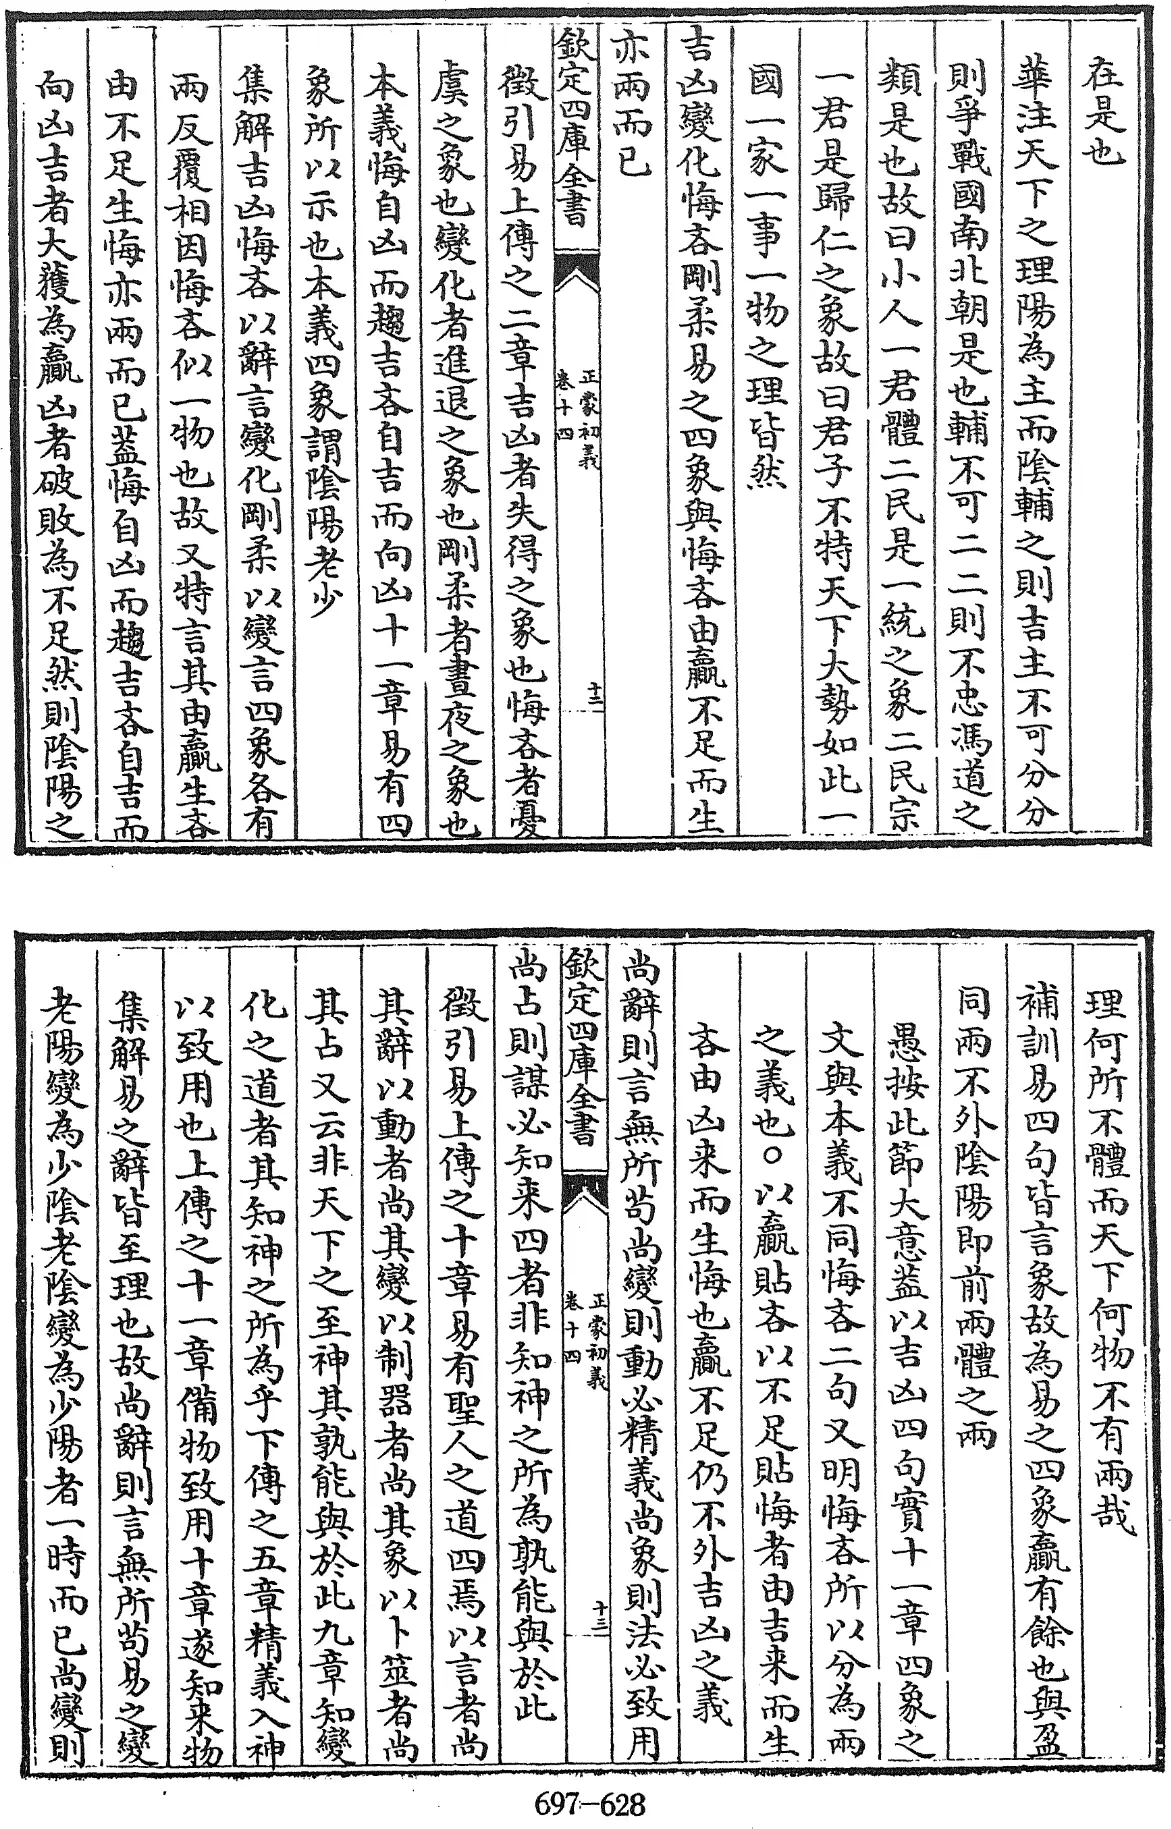 在是也
華注天下之理陽為主而陰輔之則吉主不可分分
則爭戰國南北朝是也輔不可二二則不忠馮道之
類是也故曰小人一君體二民是一統之象二民宗
一君是歸仁之象故曰君子不特天下大勢如此一
國一家一事一物之理皆然
吉凶變化悔吝剛柔易之四象與悔吝由贏不足而生
亦兩而已
欽定四庫全書
正蒙初義
卷十四
十二
徵引易上傳之二章吉凶者失得之象也悔吝者憂
虞之象也變化者進退之象也剛柔者晝夜之象也
本義悔自凶而趨吉吝自吉而向凶十一章易有四
象所以示也本義四象謂陰陽老少
集解吉凶悔吝以辭言變化剛柔以變言四象各有
兩反覆相因悔吝似一物也故又特言其由贏生吝
由不足生悔亦兩而已葢悔自凶而趨吉吝自吉而
向凶吉者大獲為贏凶者破敗為不足然則陰陽之
理何所不體而天下何物不有兩哉
補訓易四句皆言象故為易之四象贏有餘也與盈
同兩不外陰陽即前兩體之兩
愚按此節大意葢以吉凶四句實十一章四象之
文與本義不同悔吝二句又明悔吝所以分為兩
之義也○以贏貼吝以不足貼悔者由吉来而生
吝由凶来而生悔也贏不足仍不外吉凶之義
尚辭則言無所苟尚變則動必精義尚象則法必致用
欽定四庫全書
正蒙初義
卷十四
十三
尚占則謀必知来四者非知神之所為孰能與於此
徵引易上傳之十章易有聖人之道四焉以言者尚
其辭以動者尚其變以制器者尚其象以卜筮者尚
其占又云非天下之至神其孰能與於此九章知變
化之道者其知神之所為乎下傳之五章精義入神
以致用也上傳之十一章備物致用十章遂知来物
集解易之辭皆至理也故尚辭則言無所苟易之變
老陽變為少陰老陰變為少陽者一時而已尚變則
697-628